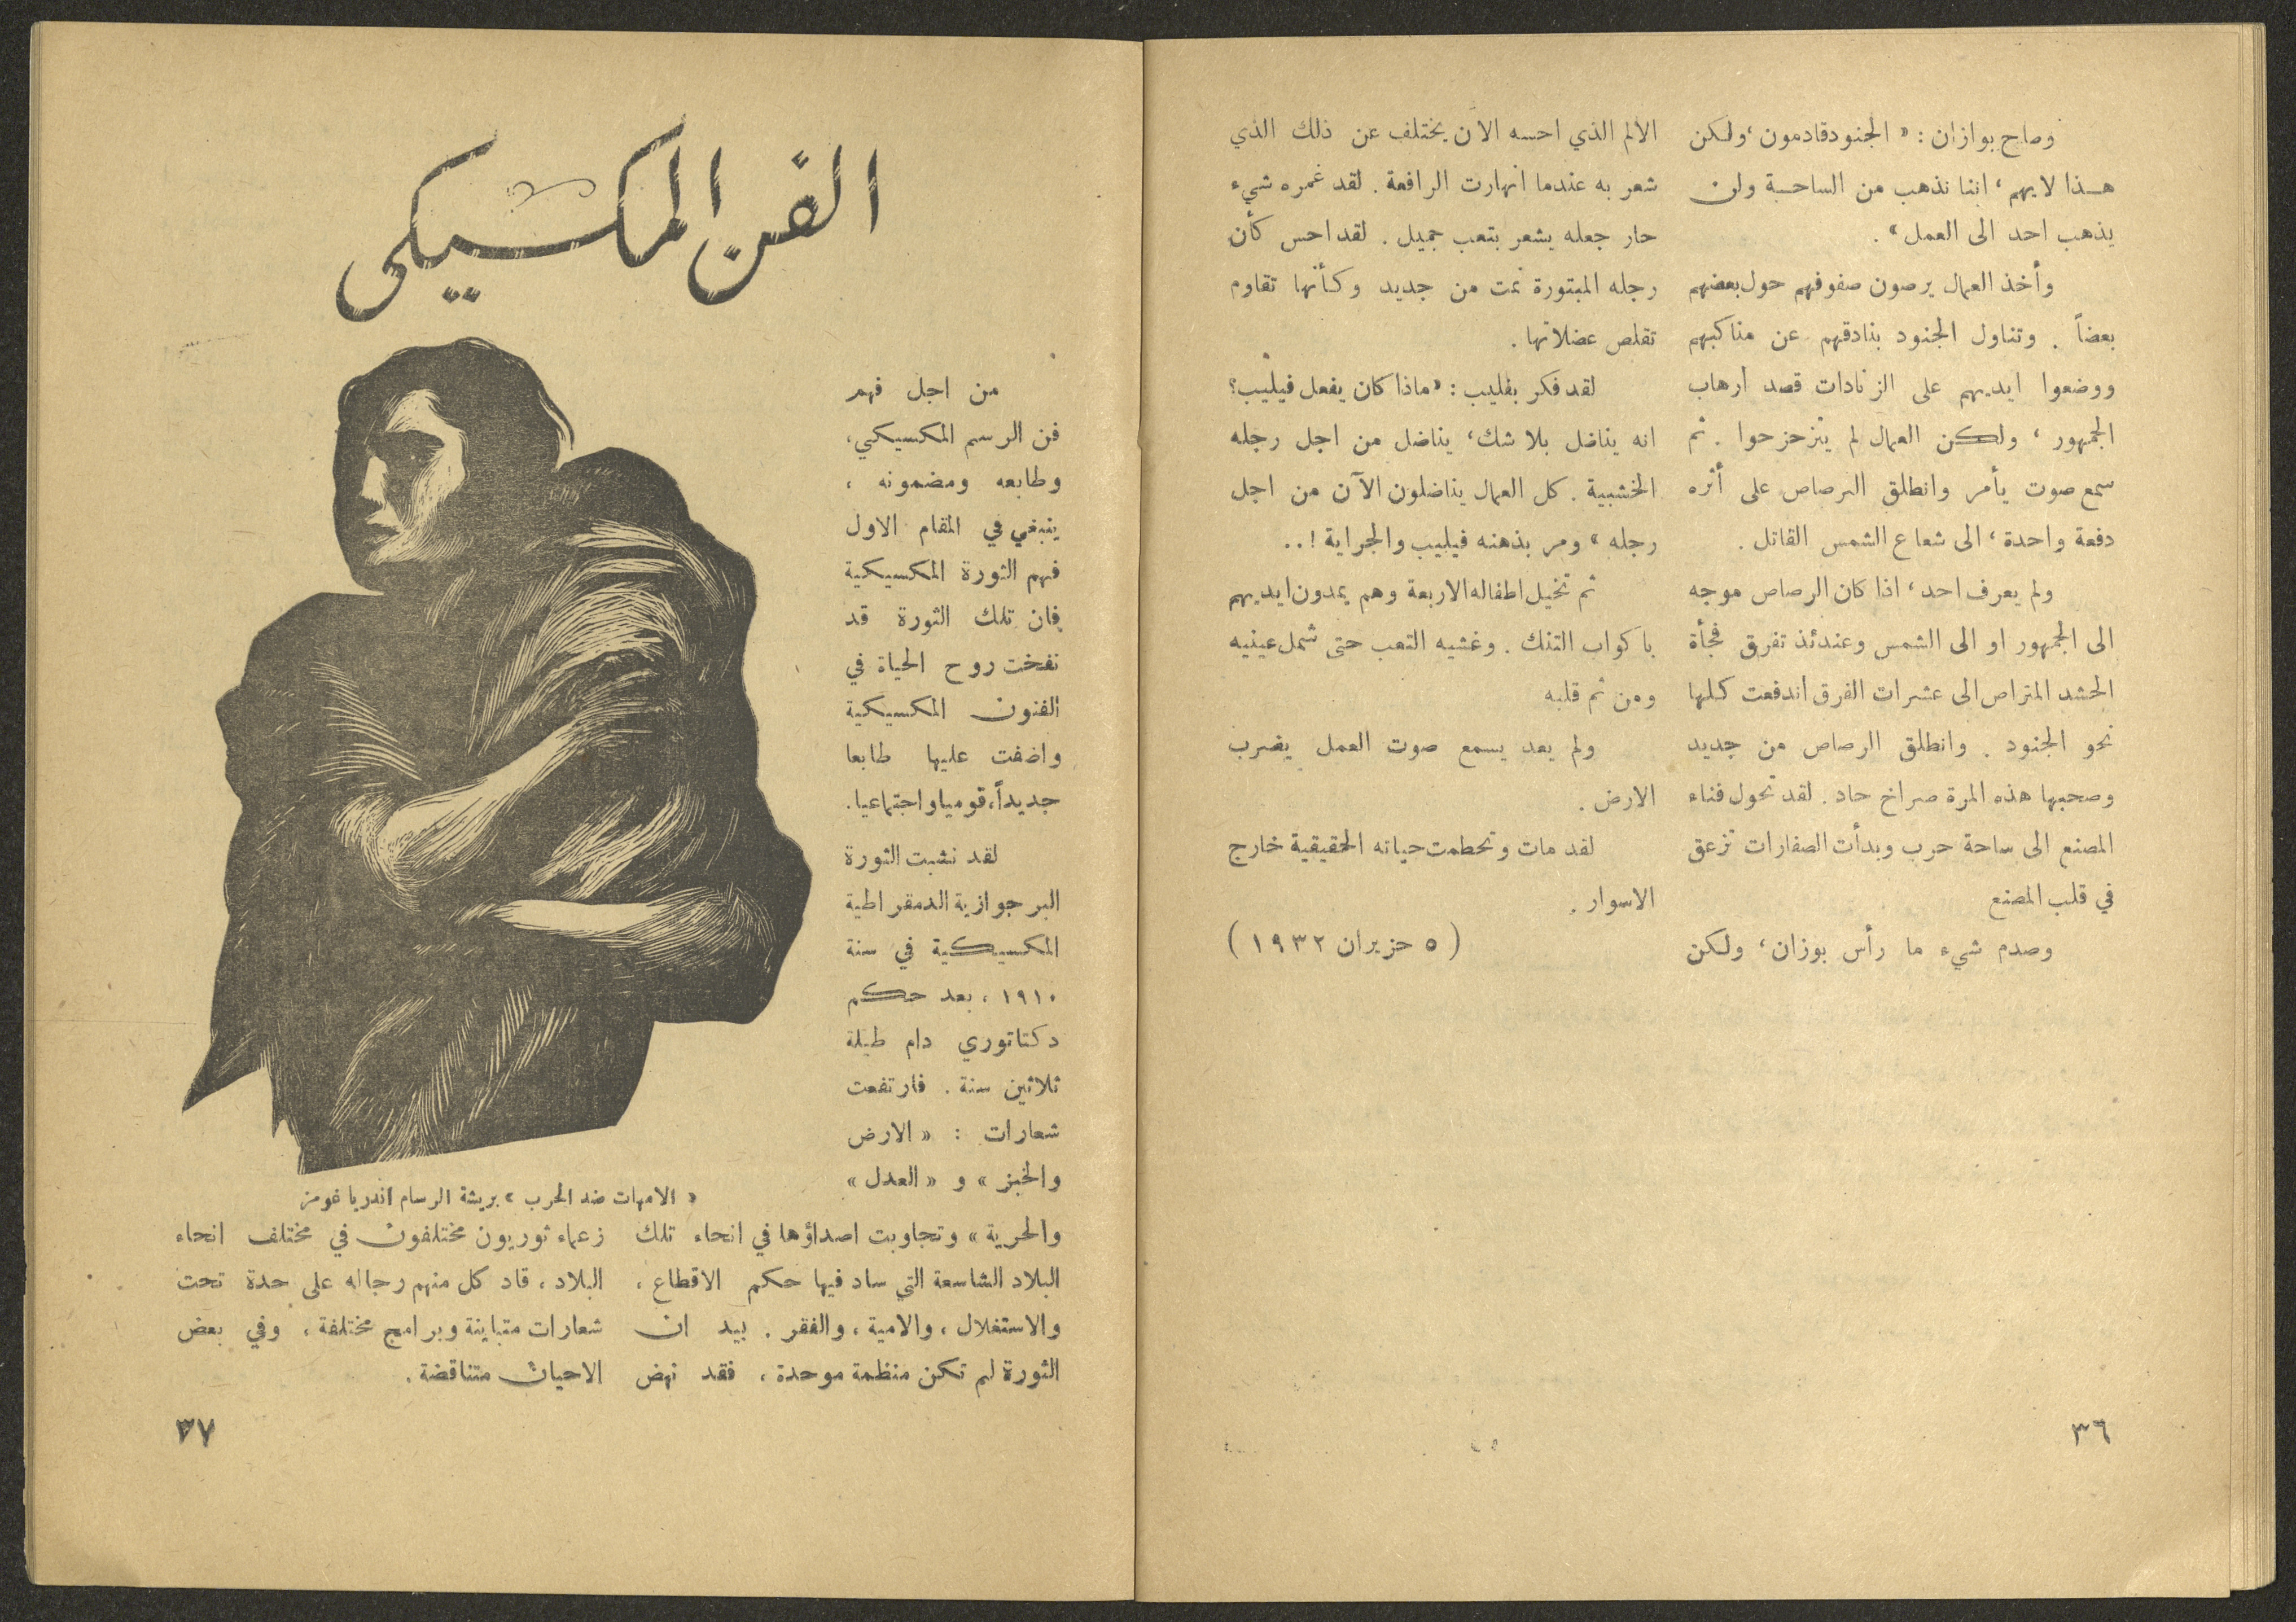 وصاح بوازان : « الجنود قادمون ، ولكن
هـذا لا يهم ، اننا نذهب من الساحـة ولن
يذهب احد الى العمل » .
وأخذ العمال يرصون صفوفهم حول بعضهم
بعضاً . وتناول الجنود بنادقهم عن مناكبهم
ووضعوا ايديهم على الزنادات قصد ارهاب
الجمهور ، ولكن العمال لم يتزحزحوا . ثم
سمع صوت يأمر وانطلق الرصاص على أثره
دفعة واحدة ، الى شعاع الشمس القاتل .
ولم يعرف احد ، اذا كان الرصاص موجه
الى الجمهور او الى الشمس وعندئذ تفرق فجأة
الحشد المتراص الى عشرات الفرق اندفعت كلها
نحو الجنود . وانطلق الرصاص من جديد
وصحبها هذه المرة صراخ حاد . لقد تحول فناء
المصنع الى ساحة حرب وبدأت الصفارات تزعق
في قلب المصنع
وصدم شيء ما رأس بوزان ، ولكن
الالم الذي احسه الان يختلف عن ذلك الذي
شعر به عندما انهارت الرافعة . لقد غمره شيء
حار جعله يشعر بتعب جميل . لقد احس كأن
رجله المبتورة نمت من جديد وكأنها تقاوم
تقلص عضلاتها .
لقد فكر بفليب : « ماذا كان يفعل فيليب ؟
انه يناضل بلا شك ، يناضل من اجل رجله
الخشبية . كل العمال يناضلون الآن من اجل
رجله » ومر بذهنه فيليب والجراية ! . .
ثم تخيل اطفاله الاربعة وهم يمدون ايديهم
باكواب التنك . وغشيه التعب حتى شمل عينيه
ومن ثم قلبه
ولم يعد يسمع صوت العمل يضرب
الارض .
لقد مات وتحطمت حياته الحقيقية خارج
الاسوار .
( ٥ حزيران ١٩٣٢ )
٣٦
الفن المكسيكي
من اجل فهم
فن الرسم المكسيكي ،
وطابعه ومضمونه ،
ينبغي في المقام الاول
فهم الثورة المكسيكية
فان تلك الثورة قد
نفخت روح الحياة في
الفنون المكسيكية
واضفت عليها طابعا
جديداً ، قوميا واجتماعيا .
لقد نشبت الثورة
البرجوازية الدمقراطية
المكسيكية في سنة
١٩١٠ ، بعد حكم
دكتاتوري دام طيلة
ثلاثين سنة . فارتفعت
شعارات : « الارض
والخبز » و « العدل »
« الامهات ضد الحرب » بريشة الرسام اندريا غومز
والحرية » وتجاوبت اصداؤها في انحاء تلك
البلاد الشاسعة التي ساد فيها حكم الاقطاع ،
والاستغلال ، والامية ، والفقر . بيد ان
الثورة لم تكن منظمة موحدة ، فقد نهض
زعماء ثوريون مختلفون في مختلف انحاء
البلاد ، قاد كل منهم رجاله على حدة تحت
شعارات متباينة وبرامج مختلفة ، وفي بعض
الاحيان متناقضة .
٣٧